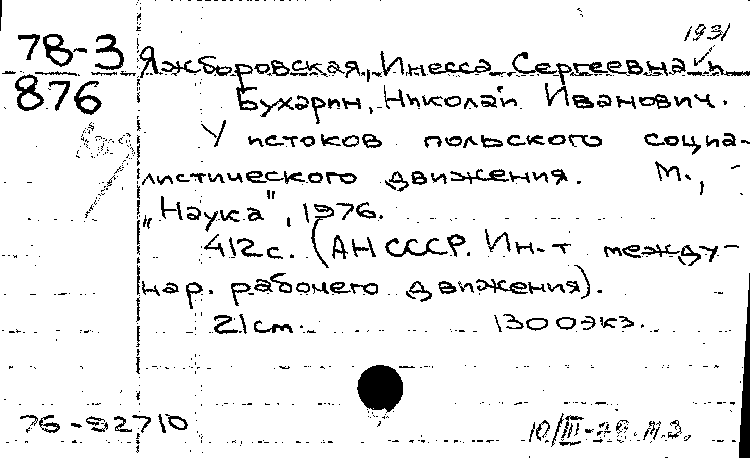 1931
78-3
876
Яжборовская, Инесса Сергеевна и
Бухарин, Николай Иванович.
У истоков польского социа-
листического движения. М.,
„Наука", 1976.
412 с. (АН СССР. Ин-т между-
нар. рабочего движения).
21 см. 1300 экз.
76-92710
10/III-78. М.З.